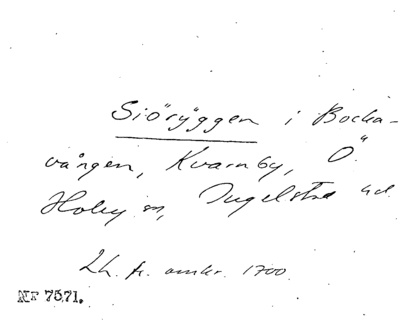 Siöryggen i Bocka-
vången, Kvarnby, Ö.
Hoby sn, Ingelstad hd.
Lh. fr. omkr. 1700.
Nr 7571.